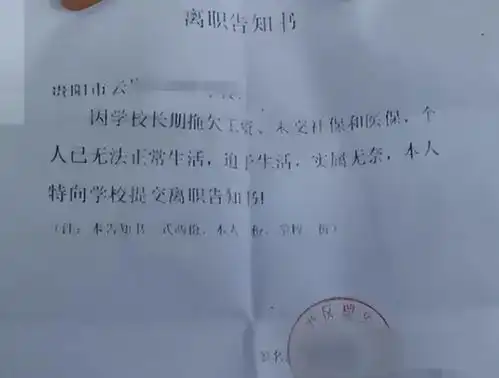 离职告知书
贵阳市云
因学校长期拖欠工资、未交社保和医保，个
人已无法正常生活，迫于生活，实属无奈，本人
特向学校提交离职告知书!
（注：本告知书一式两份，本人一份，学校一份）
签名